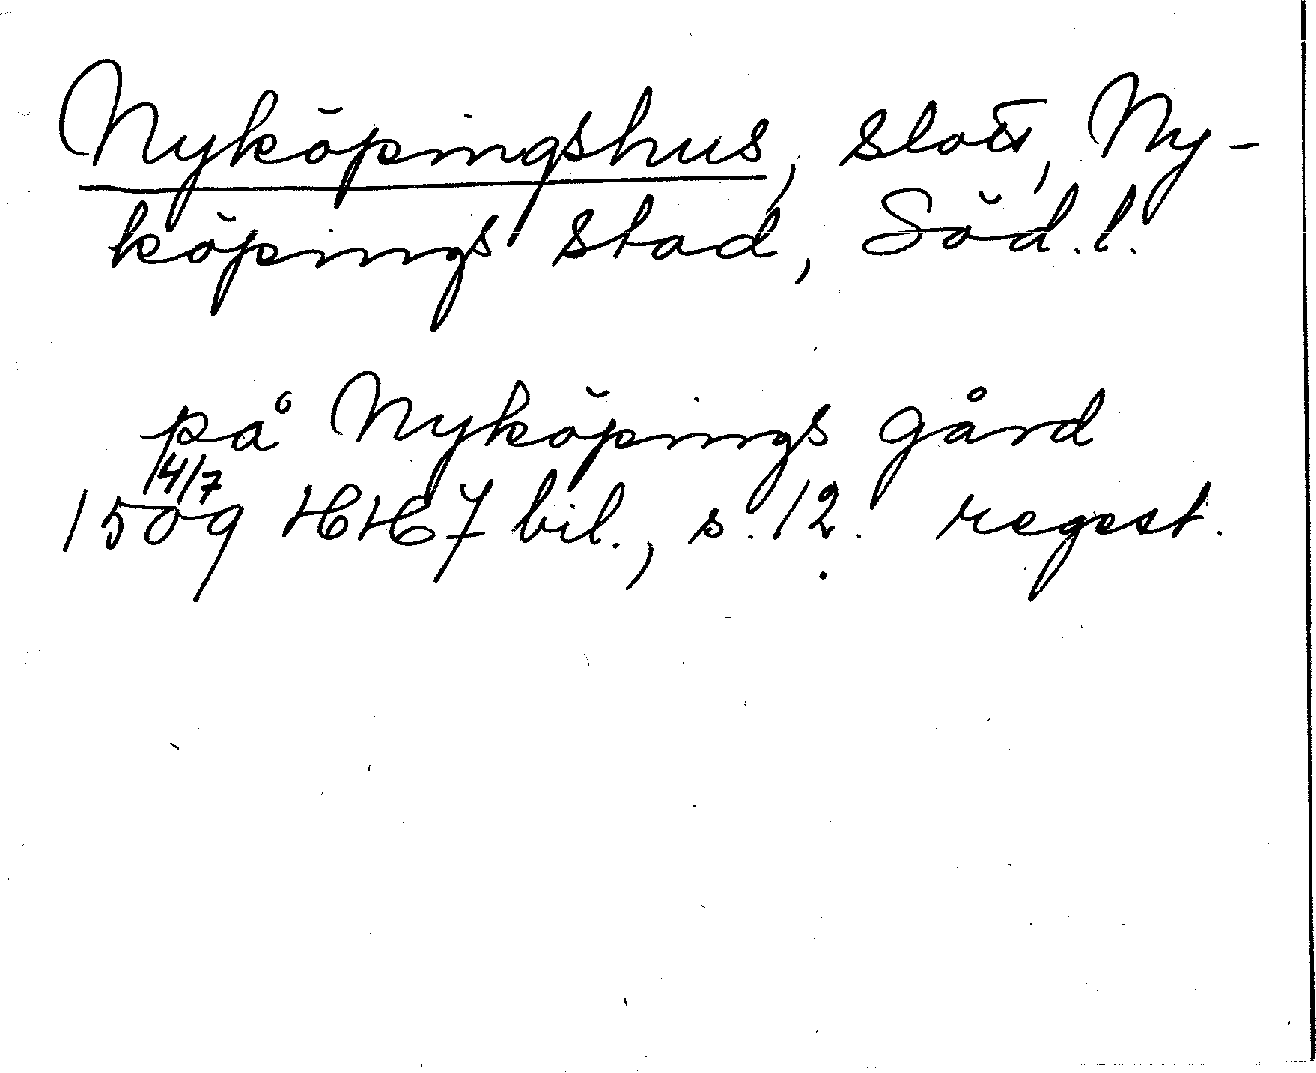 Nyköpingshus, slott, Ny-
köpings stad, Söd.l.
på Nyköpings gård
14/7
1509 HH 7 bil., s. 12. regest.